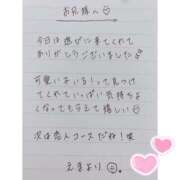 お兄様へ
今日は遊びに来てくれて
ありがとうございました
可愛いなぁ!って見つけ
てくれていっぱい気持ちよ
くなってもらえて嬉しい
次は恋人コースだね!笑
えまより